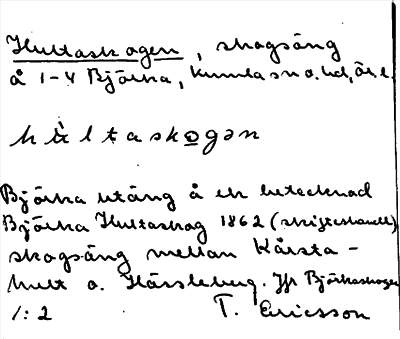 Hultaskogen, skogsäng
å 1-4 Björka, Kumla sn o. hd, Ör. l.
hùltaskogən
Björka utäng å en betecknad
Björka Hultaskog 1862 (skifteshandl.)
skogsäng mellan Kårsta-
hult o. Härsleberg. Jfr Björkaskogen
1:2 T. Ericsson